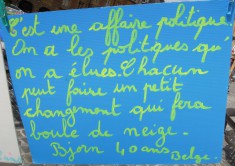 C'est une affaire politique.
On a les politiques qu'
on a élues. Chacun
peut faire un petit
changement qui fera
boule de neige.
Bjorn 40 ans Belge.